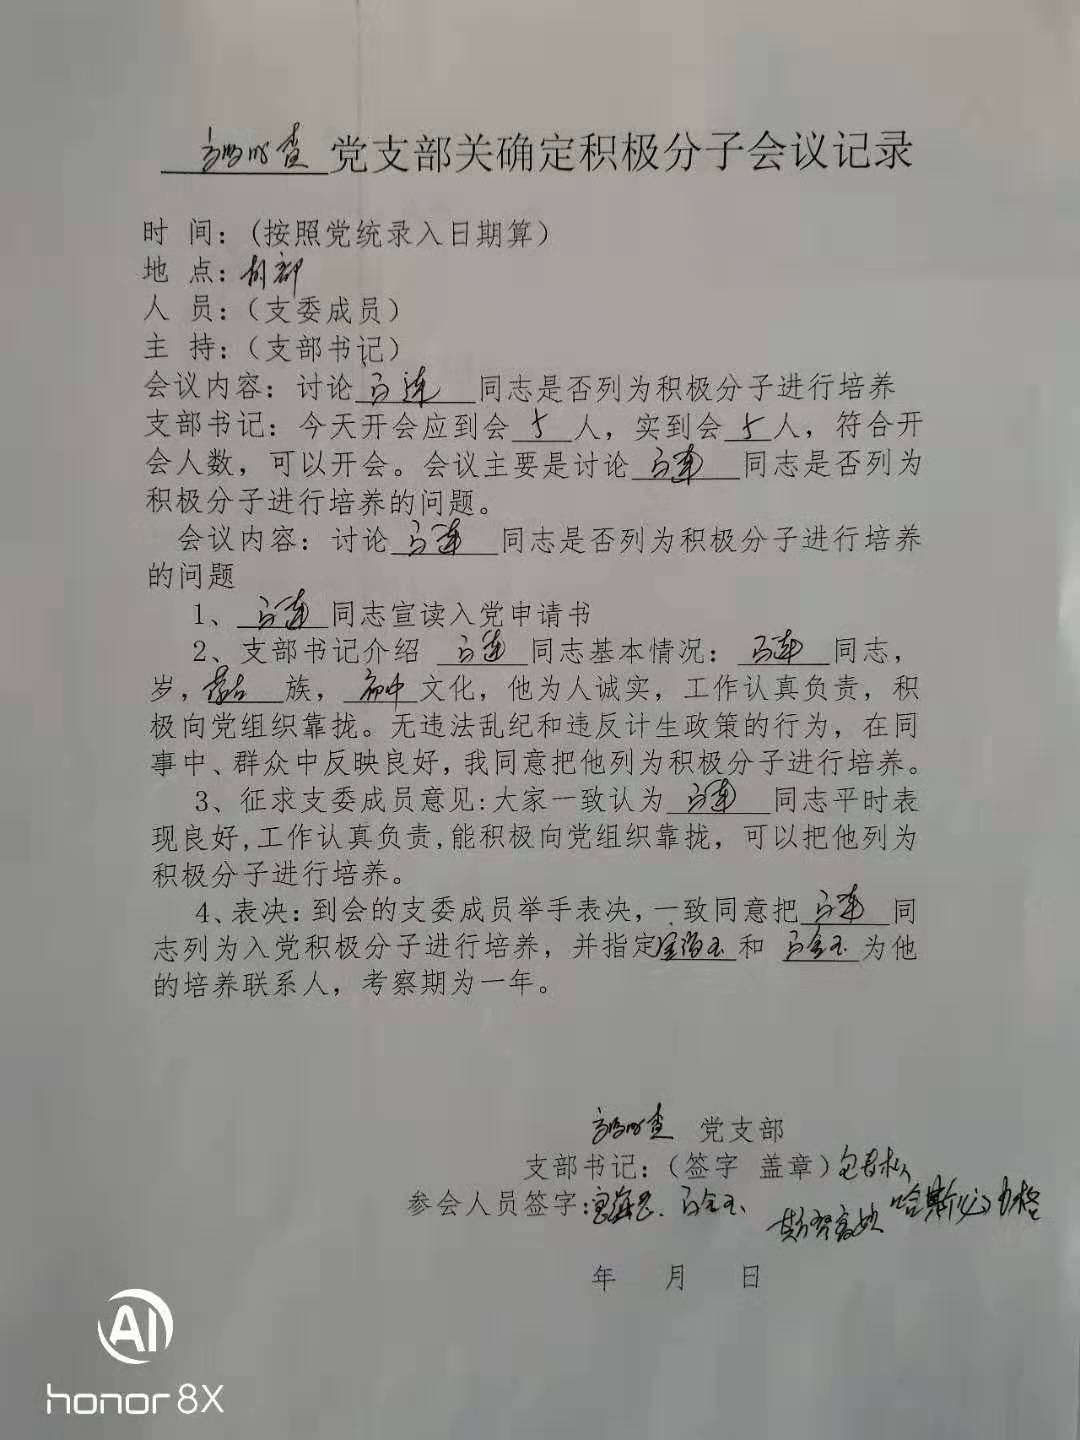 党支部关确定积极分子会议记录
时 间：(按照党统录入日期算）
地 点：村部
人 员：（支委成员）
主 持：（支部书记）
会议内容：讨论 同志是否列为积极分子进行培养
支部书记：今天开会应到会 5 人，实到会 5 人，符合开
会人数，可以开会。会议主要是讨论 同志是否列为
积极分子进行培养的问题。
会议内容：讨论 同志是否列为积极分子进行培养
的问题
1、 同志宣读入党申请书
2、支部书记介绍 同志基本情况： 同志，
岁，蒙古 族， 初中 文化，他为人诚实，工作认真负责，积
极向党组织靠拢。无违法乱纪和违反计生政策的行为，在同
事中、群众中反映良好，我同意把他列为积极分子进行培养。
3、征求支委成员意见:大家一致认为 同志平时表
现良好,工作认真负责,能积极向党组织靠拢，可以把他列为
积极分子进行培养。
4、表决：到会的支委成员举手表决，一致同意把 同
志列为入党积极分子进行培养，并指定 和 为他
的培养联系人，考察期为一年。
党支部
支部书记：（签字 盖章）
参会人员签字:
年 月 日
AI
honor 8X